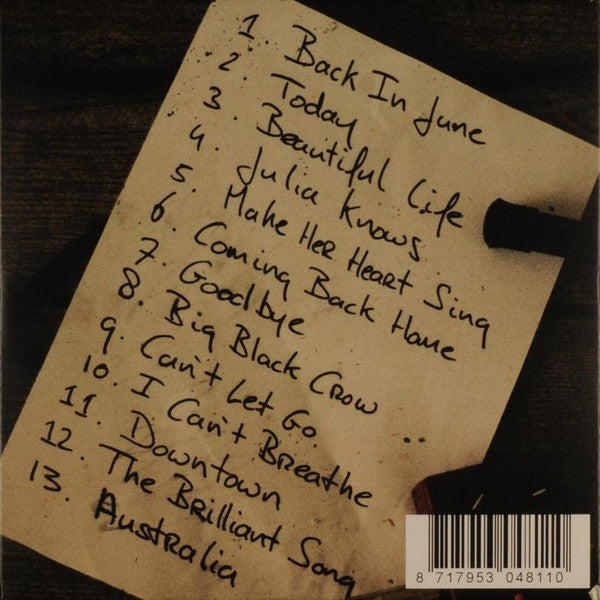 1. Back In June
2. Today
3. Beautiful Life
4. Julia Knows
5. Make Her Heart Sing
6. Coming Back Home
7. Goodbye
8. Big Black Crow
9. Can't Let Go
10. I Can't Breathe
11. Downtown
12. The Brilliant Song
13. Australia
8 717953 048110